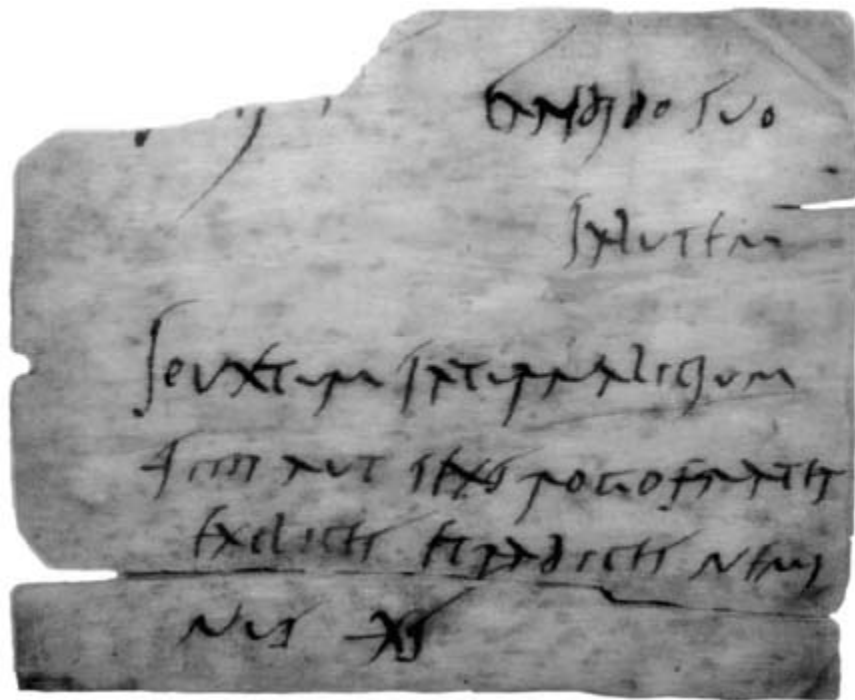 Candido suo
salutem
souxtum saturnalicium
iiii aut sexs rogo frater
explices et radices ne mi
nus